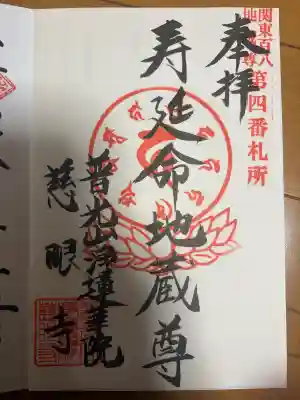 関東百八
地蔵尊
第四番札所
奉拝
寿延命地蔵尊
普光山
蓮華院
慈眼寺